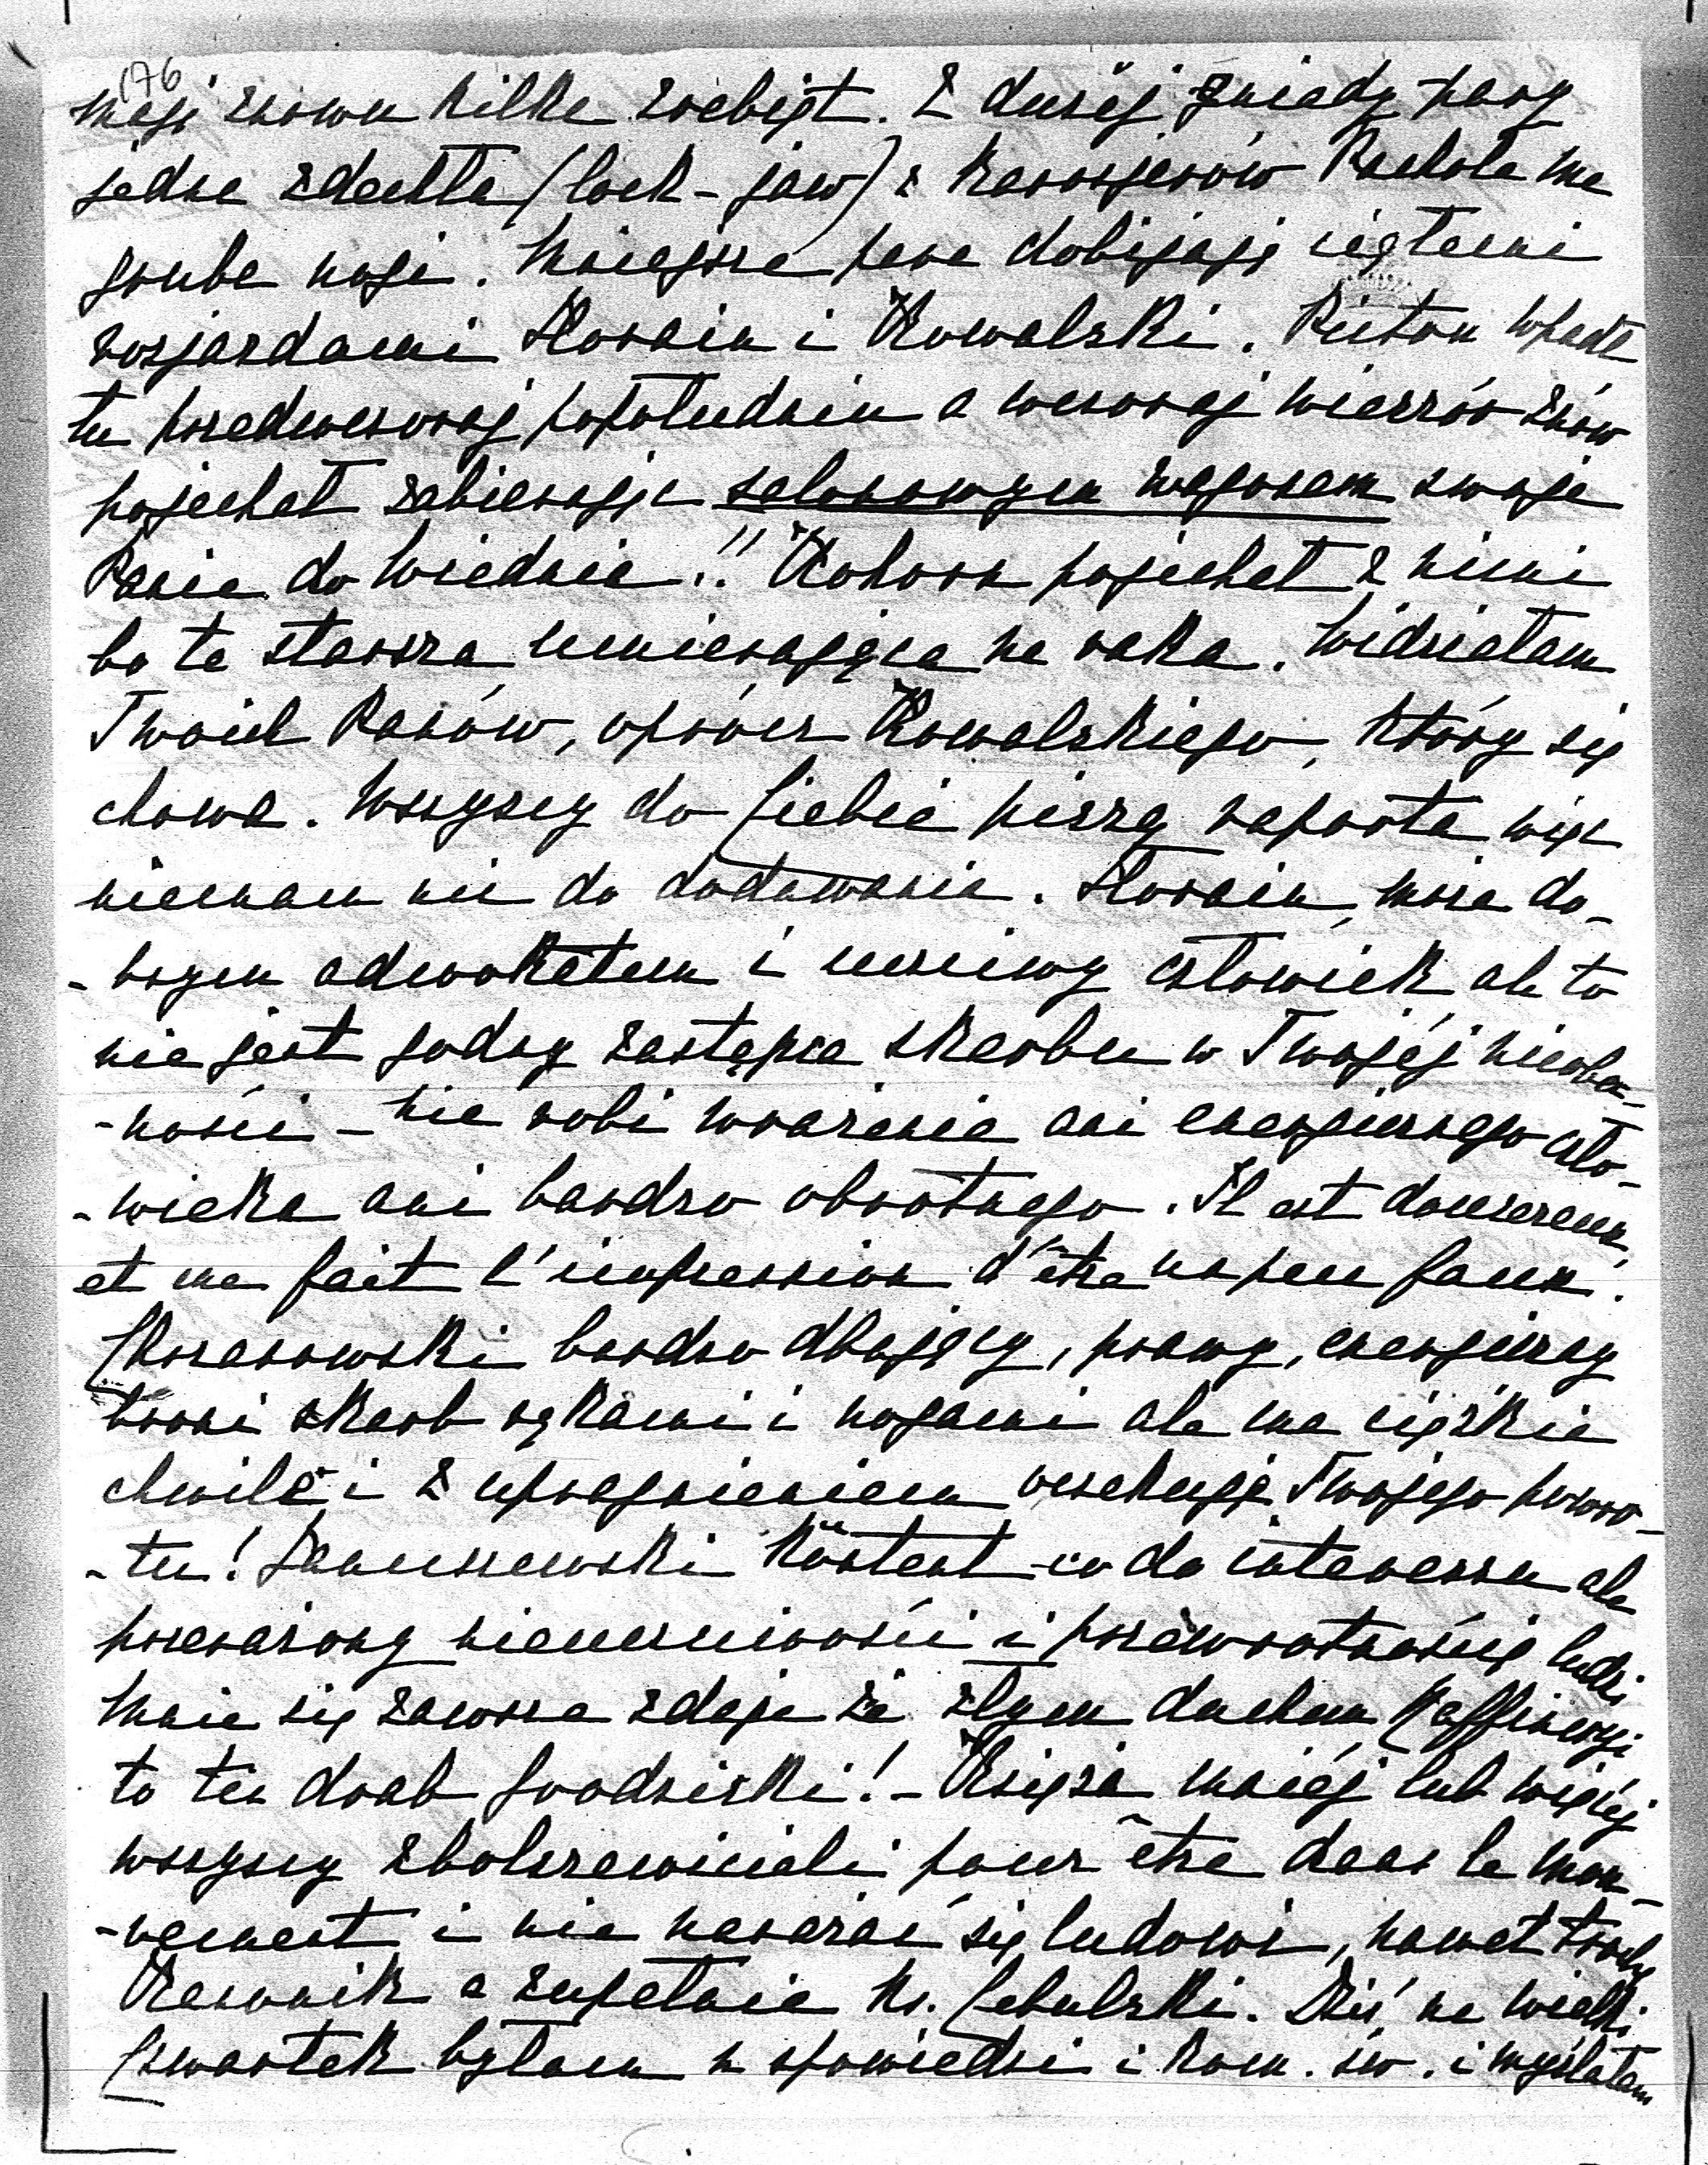 176
mają znowu kilka źrebiąt. Z dużej gniady pary
jedna zdechła (lock-jaw) z Karosjerów Rachela ma
grube nogi. Mniejsze pare dobijają ciągłemi
rozjazdami Horain i Kowalski. Pieton wpadł
tu przedwczoraj popołudniu a wczoraj wieczór znów
pojechał zabierając salonowym wagonem swoje
Panie do Wiednia!! Kohorn pojechał z niemi
bo ta starsza umierająca na raka. Widziałam
Twoich Panów, oprócz Kowalskiego, który się
chowa. Wszyscy do Ciebie piszą raporta więc
niemam nic do dodawania. Horain, może do-
-brym adwokatem i uczciwy człowiek ale to
nie jest godny zastępca skarbu w Twojéj nieobec-
-ności - nie robi wrażenia ani energicznego czło-
-wieka ani bardzo obrotnego. Il est doucereux,
et me fait l'impression d'être un peu faux.
Chrzanowski bardzo dbający, prawy, energiczny
broni skarb rękami i nogami ale ma ciężkie
chwile i z upragnieniem oczekuję Twojego powro-
-tu! Januszewski Köstent co do interessu ale
przerażony nieuczciwości i przewrotnością ludzi
Mnie się zawsze zdaje że złym duchem Raffineryi
to ten drab Grodziski! - Księża mniéj lub więcéj
wszyscy zbolszewicieli pour être dans le mou-
-vement i nie narazać się ludowi, nawet trochę
Kanonik a zupełnie Ks. Cebulski. Dziś, na Wielki
Czwartek byłam u spowiedzi i kom. św. i myślałam